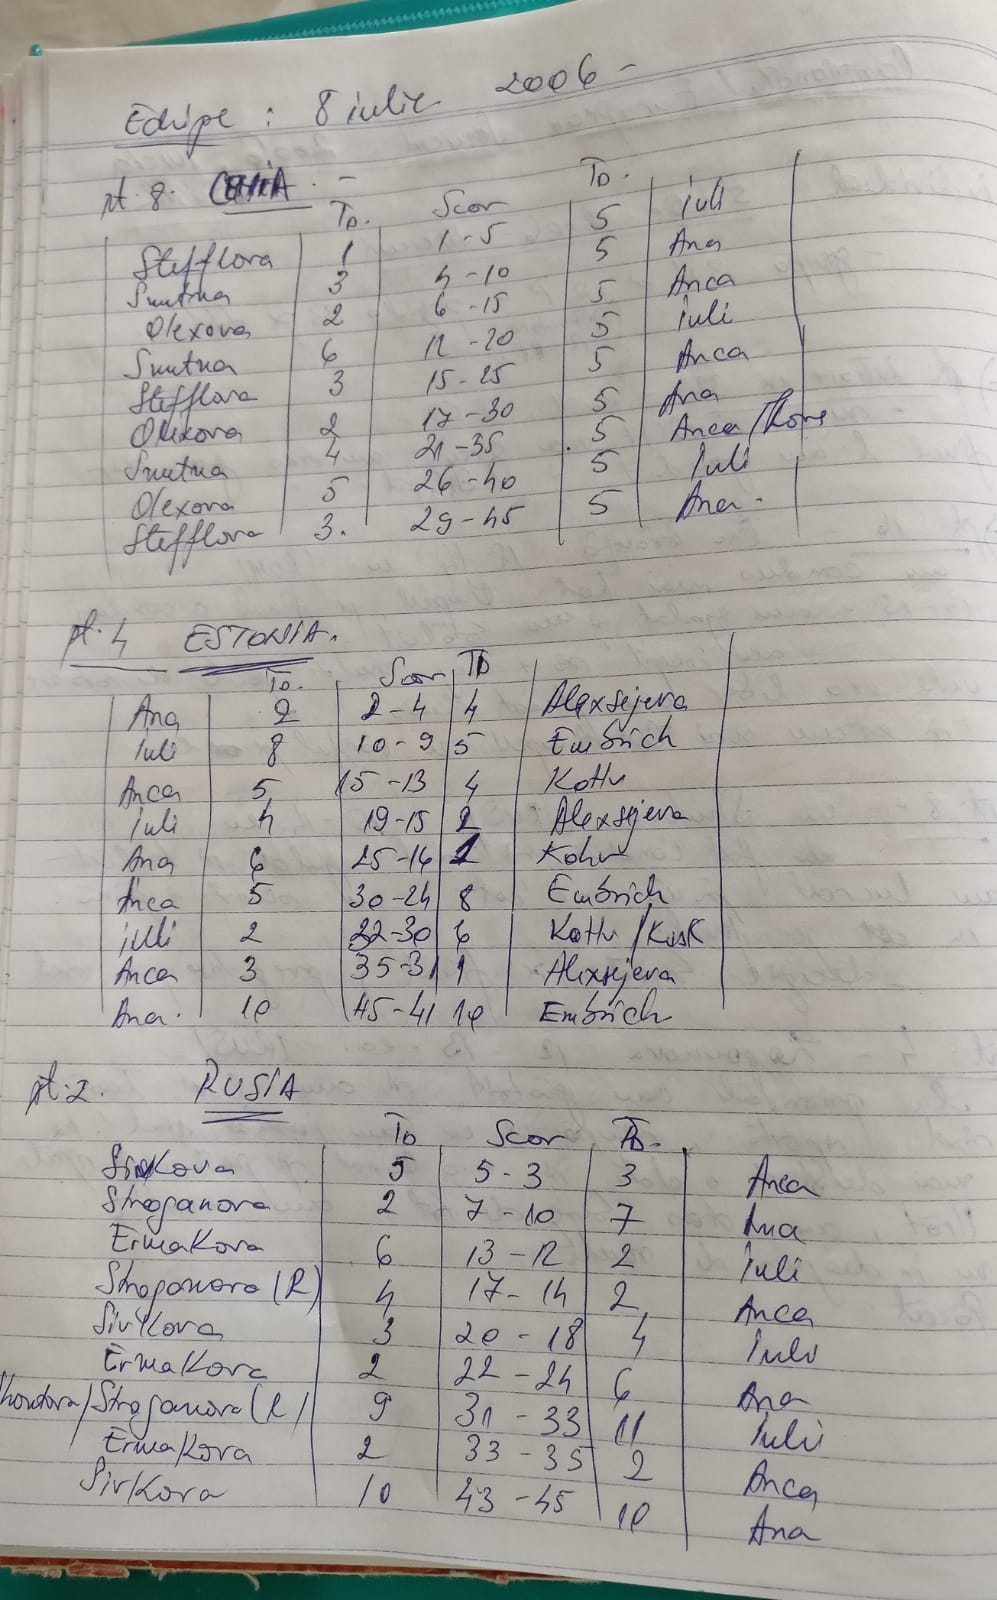 Echipe : 8 iulie 2006 -
pt. 8. CEHIA. -
TD. Scor TD.
Stefflova 1 1-5 5 iuli
Smutna 3 4-10 5 Ana
Olexova 2 6-15 5 Anca
Smutna 6 12-20 5 iuli
Stefflova 3 15-25 5 Anca
Olexova 2 17-30 5 Ana
Smutna 4 21-35 5 Anca/
Olexova 5 26-40 5 Iuli
Stefflova 3. 29-45 5 Ana.
pt. 4 ESTONIA.
TD. Scor TD
Ana 2 2-4 4 Alexsejeva
Iuli 8 10-9 5 Embrich
Anca 5 15-13 4 Kottu
iuli 4 19-15 2 Alexsejeva
Ana 6 25-16 1 Kohv
Anca 5 30-24 8 Embrich
iuli 2 32-30 6 Kottu /Kusk
Anca 3 35-31 1 Alexsejeva
Ana. 10 45-41 10 Embrich
pt. 2. RUSIA
TD Scor TD.
Sivkova 5 5-3 3 Anca
Stroganova 2 7-10 7 Ana
Ermakova 6 13-12 2 iuli
Stroganova (R) 4 17-14 2 Anca
Sivkova 3 20-18 4 Iuli
Ermakova 2 22-24 6 Ana
/Stroganova (R) 9 31-33 11 Iuli
Ermakova 2 33-35 2 Anca
Sivkova 10 43-45 10 Ana